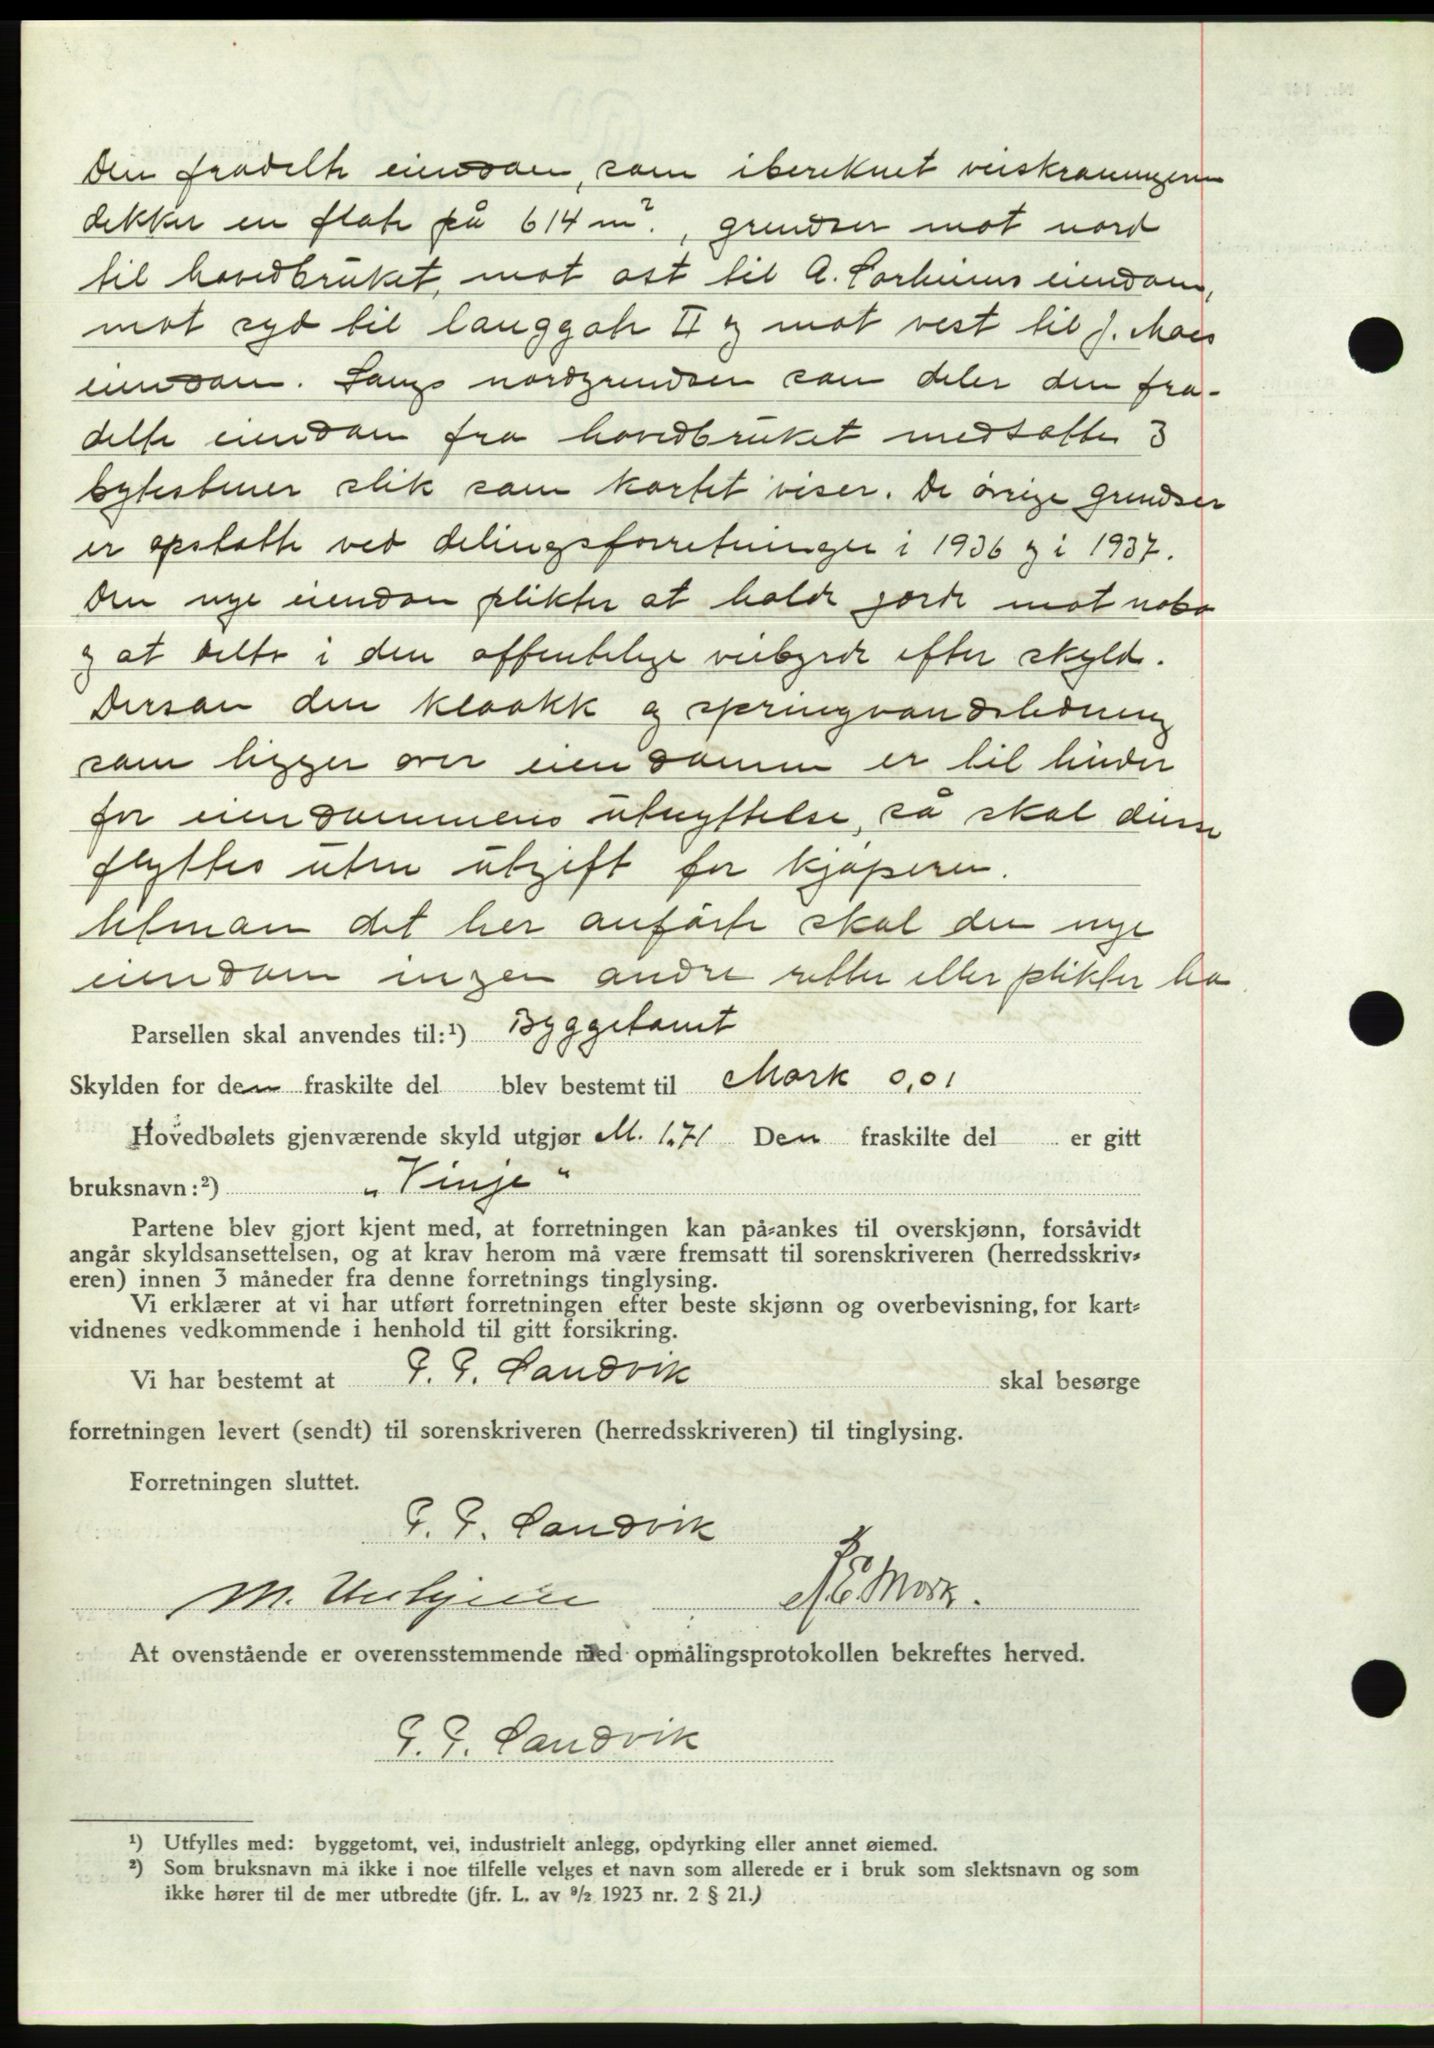 Den fradelte eiendom, som ibereknet veiskraaningene
dekker en flate på 614 m²., grendser mot nord
til hovedbruket, mot øst til A. eiendom,
mot syd til langgate II og mot vest til J. Moes
eiendom. Langs nordgrendsen som deler den fra-
delte eiendom fra hovedbruket nedsattes 3
bytestener slik som kartet viser. De øvrige grendser
er opsatte ved delingsforretninger i 1936 og i 1937.
Den nye eiendom plikter at holde gjerde mot nabo
og at delta i den offentlige veibyrde efter skyld.
Dersom den kloakk og springvandsledning
som ligger over eiendommen er til hinder
for eiendommens utnyttelse, så skal disse
flyttes uten utgift for kjøperen.
Utenom det her anførte skal den nye
eiendom ingen andre retter eller plikter ha
Parsellen skal anvendes til:¹) Byggetomt
Skylden for den fraskilte del blev bestemt til Mark 0,01
Hovedbølets gjenværende skyld utgjør M. 1.71 Den fraskilte del er gitt
bruksnavn:²) „Vinje"
Partene blev gjort kjent med, at forretningen kan på-ankes til overskjønn, forsåvidt
angår skyldsansettelsen, og at krav herom må være fremsatt til sorenskriveren (herredsskriv-
eren) innen 3 måneder fra denne forretnings tinglysing.
Vi erklærer at vi har utført forretningen efter beste skjønn og overbevisning, for kart-
vidnenes vedkommende i henhold til gitt forsikring.
Vi har bestemt at G. G. Sandvik skal besørge
forretningen levert (sendt) til sorenskriveren (herredsskriveren) til tinglysing.
Forretningen sluttet.
G. G. Sandvik
M. E. Mork.
At ovenstående er overensstemmende med opmålingsprotokollen bekreftes herved.
G. G. Sandvik
¹) Utfylles med: byggetomt, vei, industrielt anlegg, opdyrking eller annet øiemed.
²) Som bruksnavn må ikke i noe tilfelle velges et navn som allerede er i bruk som slektsnavn og som
ikke hører til de mer utbredte (jfr. L. av ⁹/₂ 1923 nr. 2 § 21.)